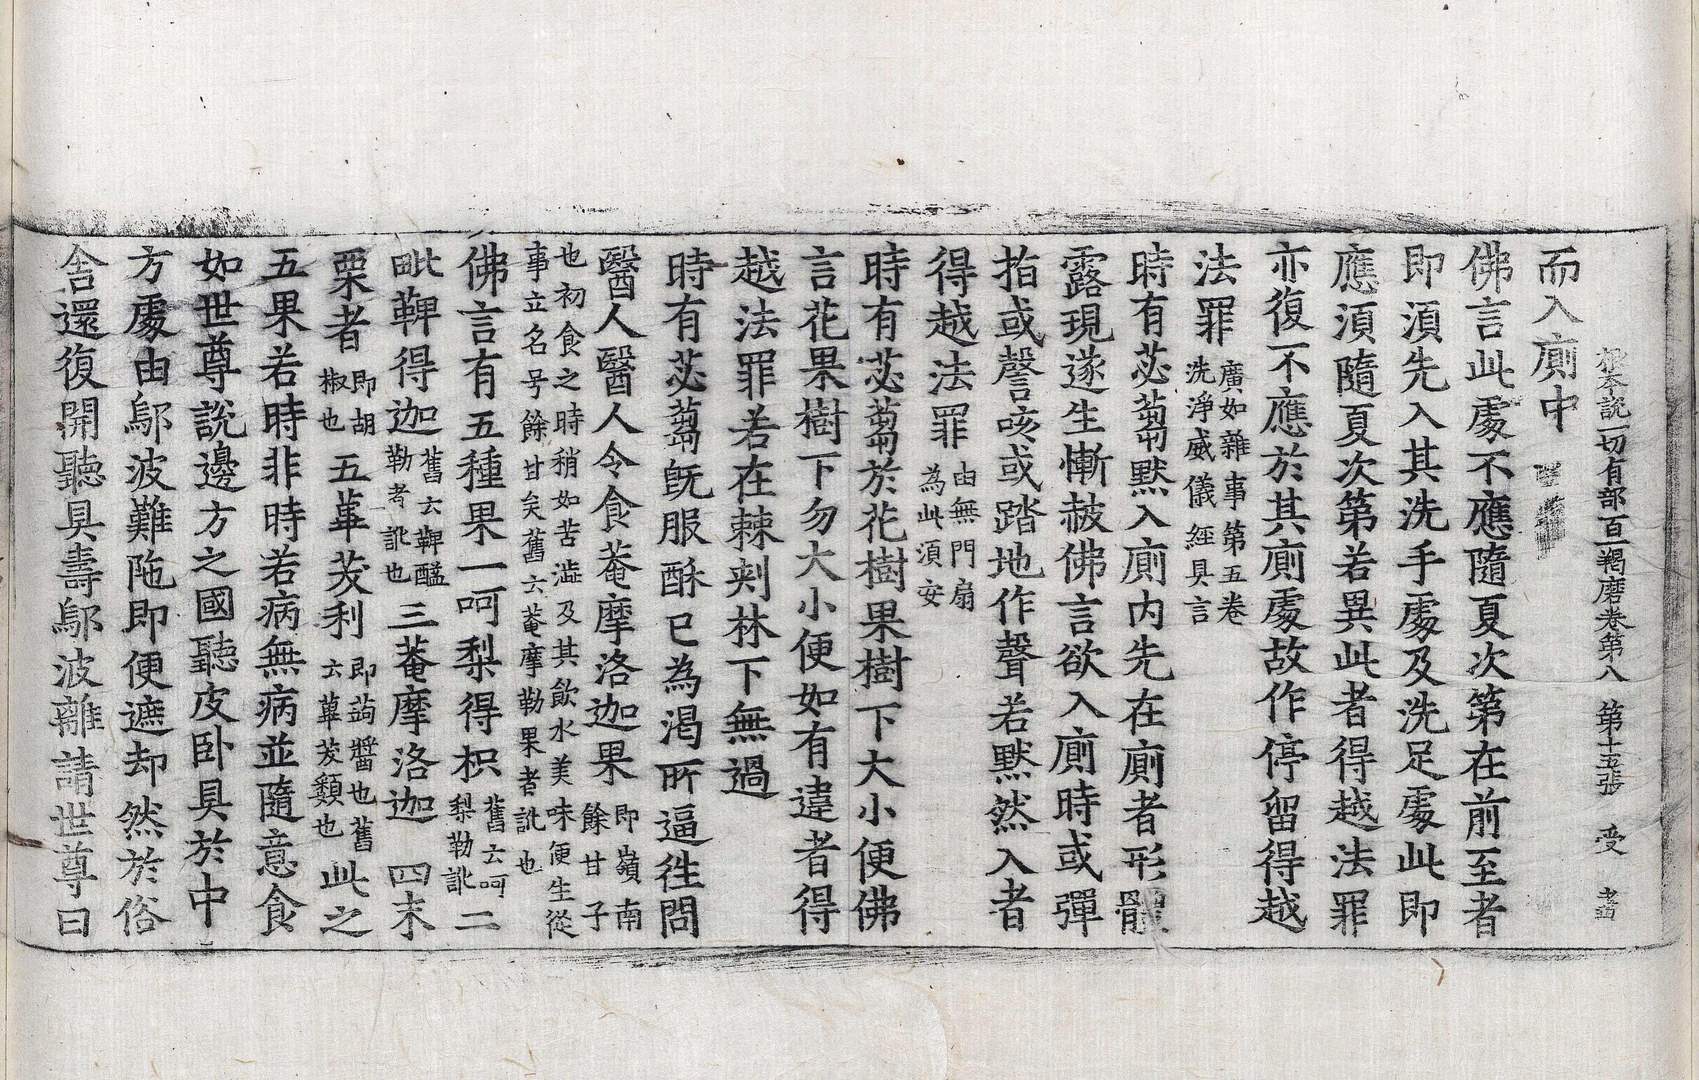 根本說一切有部百一羯磨卷第八 第十五張 受
而入廁中
佛言此處不應隨夏次第在前至者
即須先入其洗手處及洗足處此即
應須隨夏次第若異此者得越法罪
亦復不應於其廁處故作停留得越
法罪廣如雜事第五卷洗淨威儀經具言
時有苾芻默入廁內先在廁者形體
露現遂生慚赧佛言欲入廁時或彈
指或謦咳或踏地作聲若默然入者
得越法罪由無門扇為此須安
時有苾芻於花樹果樹下大小便佛
言花果樹下勿大小便如有違者得
越法罪若在棘刺林下無過
時有苾芻旣服酥已為渴所逼往問
醫人醫人令食菴摩洛迦果即嶺南餘甘子
也初食之時稍如苦澁及其飲水美味便生從
事立名号餘甘矣舊云菴摩勒果者訛也
佛言有五種果一呵梨得枳舊云呵梨勒訛二
毗鞞得迦舊云鞞醯勒者訛也三菴摩洛迦 四末
栗者即胡椒也五蓽茇利即蒟醬也舊云蓽茇類也此之
五果若時非時若病無病並隨意食
如世尊說邊方之國聽皮卧具於中
方處由鄔波難陁即便遮却然於俗
舍還復開聽具壽鄔波離請世尊曰